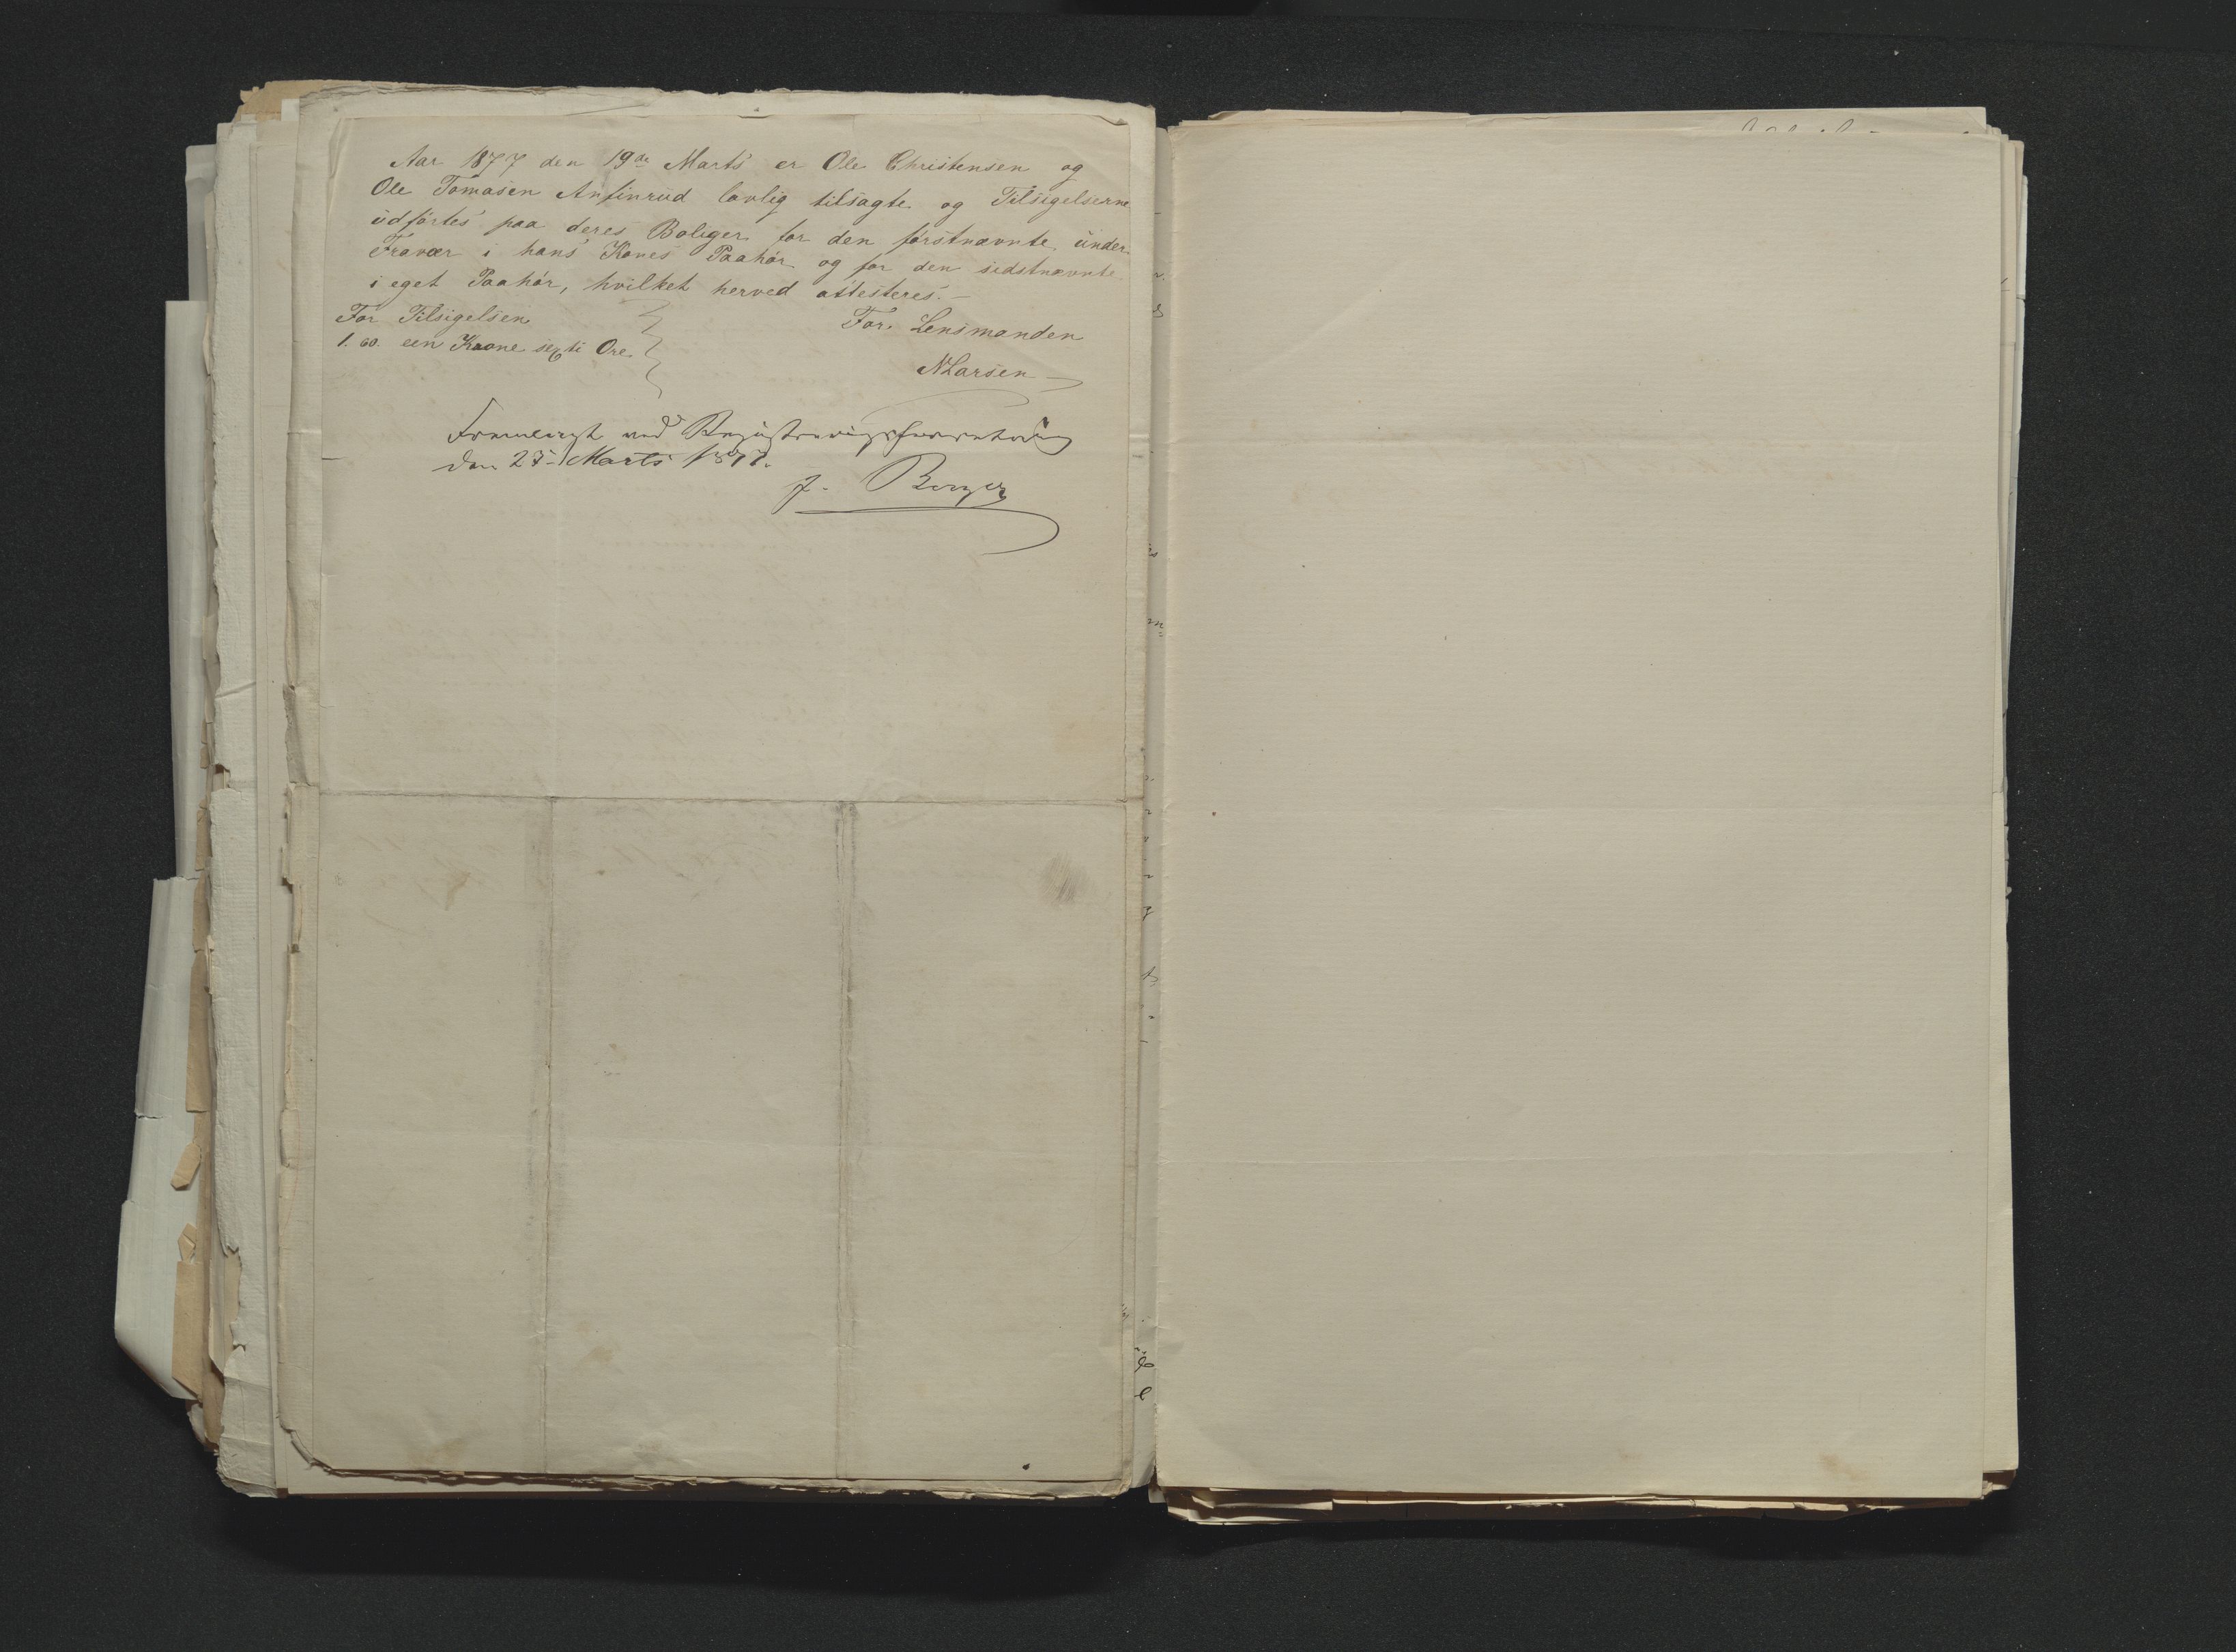 Aar 1877 den 19de Marts er Ole Christensen og
Ole Tomasen Anfinrud lovlig tilsagte og Tilsigelserne
udførtes paa deres Boliger for den førstnævnte under
Fravær i hans Kones Paahør og for den sidstnævnte
i eget Paahør, hvilket herved attesteres. –
For Tilsigelsen
1. 60. een Krone sexti Øre
For Lensmanden
NLarsen
Fremlagt ved Registreringsforretning
den 27 Marts 1877.
J. Berger